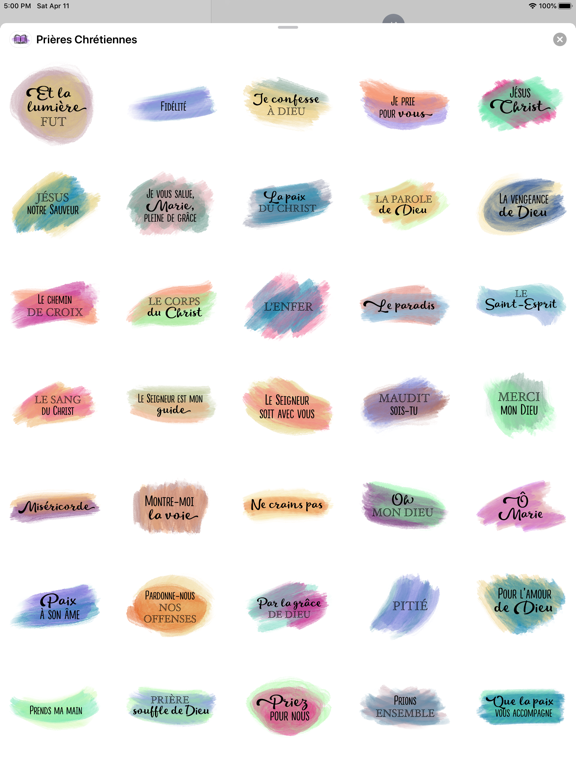 5:00 PM Sat Apr 11 100%
Prières Chrétiennes
Et la
lumière
FUT
Fidélité
Je confesse
À DIEU
Je prie
pour vous
Jésus
Christ
JÉSUS
notre Sauveur
Je vous salue,
Marie,
pleine de grâce
La paix
DU CHRIST
LA PAROLE
de Dieu
La vengeance
de Dieu
Le chemin
DE CROIX
LE CORPS
du Christ
L'ENFER
Le paradis
LE
Saint-Esprit
LE SANG
du Christ
Le Seigneur est mon
guide
Le Seigneur
soit avec vous
MAUDIT
sois-tu
MERCI
mon Dieu
Miséricorde
Montre-moi
la voie
Ne crains pas
Oh
MON DIEU
Ô
Marie
Paix
à son âme
Pardonne-nous
NOS
OFFENSES
Par la grâce
DE DIEU
PITIÉ
Pour l'amour
de Dieu
Prends ma main
PRIÈRE
souffle de Dieu
Priez
pour nous
Prions
ENSEMBLE
Que la paix
vous accompagne